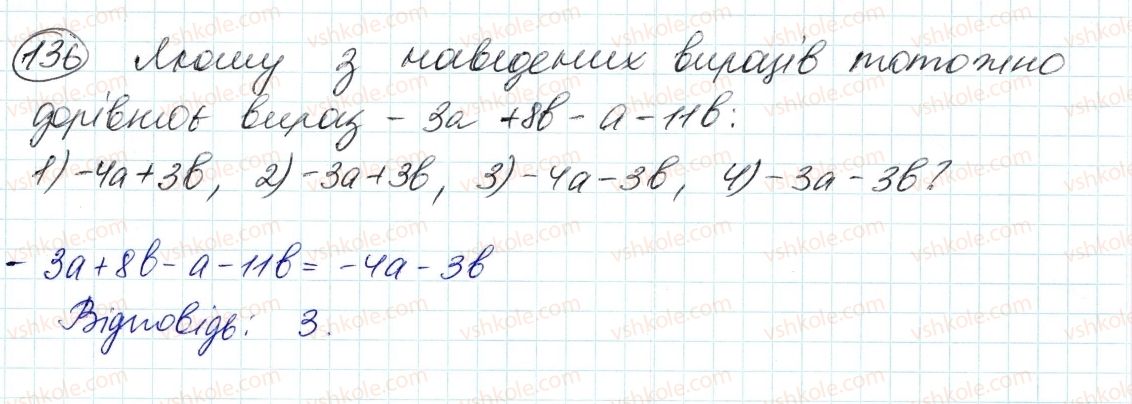 136 Якому з наведених виразів тотожно
дорівнює вираз -3a+8b-a-11b:
1) -4a+3b, 2) -3a+3b, 3) -4a-3b, 4) -3a-3b?
-3a+8b-a-11b=-4a-3b
Відповідь: 3.